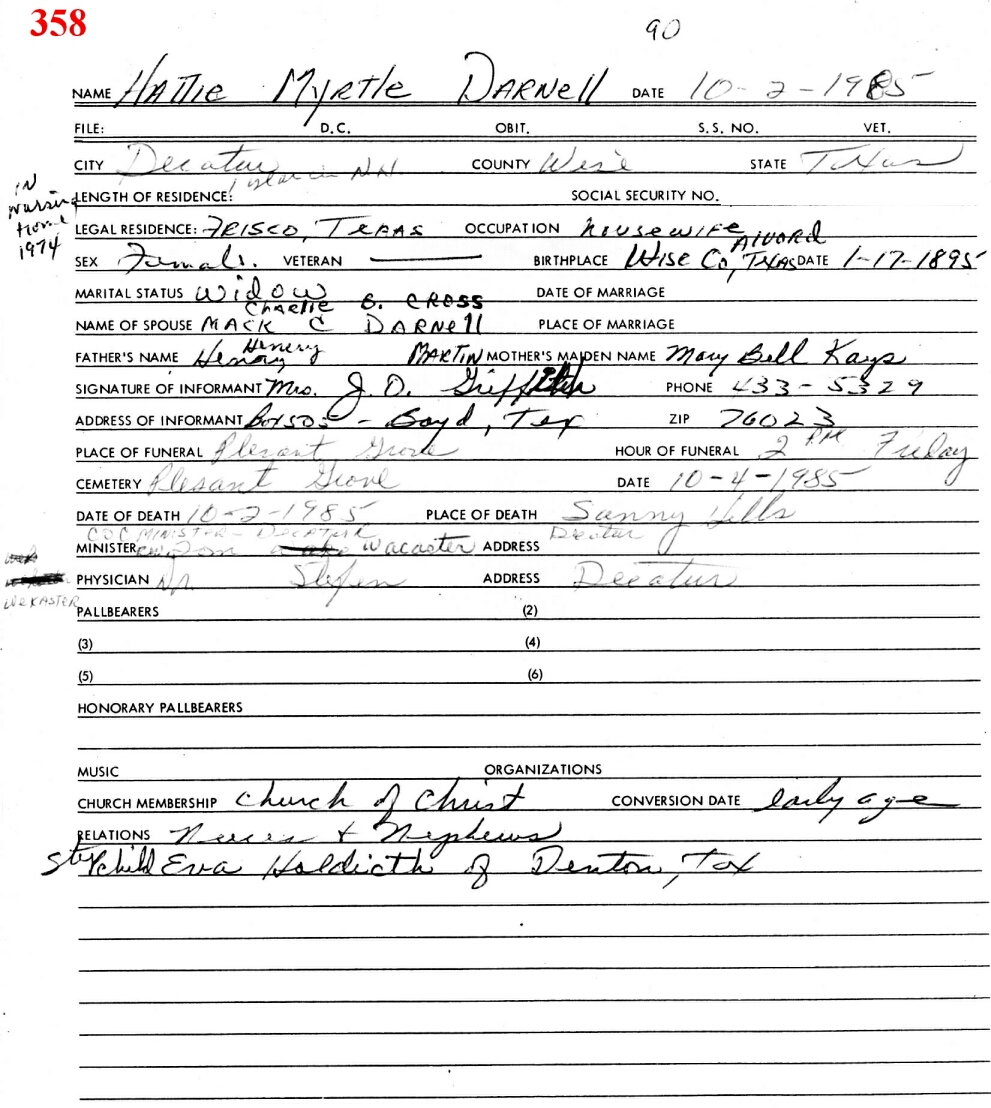 358
90
NAME Hattie Myrtle Darnell DATE 10-2-1985
FILE: D.C. OBIT. S.S. NO. VET.
CITY Decatur COUNTY Wise STATE Texas
LENGTH OF RESIDENCE: in NH SOCIAL SECURITY NO.
IN Nursing Home 1974
LEGAL RESIDENCE: FRISCO, TEXAS OCCUPATION HOUSEWIFE
SEX Female. VETERAN BIRTHPLACE Wise Co, Texas Alvord DATE 1-17-1895
MARITAL STATUS Widow DATE OF MARRIAGE
Charlie B. CROSS
NAME OF SPOUSE MACK C DARNell PLACE OF MARRIAGE
Henery
FATHER'S NAME Henry MARTIN MOTHER'S MAIDEN NAME Mary Bell Kays
SIGNATURE OF INFORMANT Mrs. J. O. Griffith PHONE 433-5329
ADDRESS OF INFORMANT Box 505 - Boyd, Tex ZIP 76023
PLACE OF FUNERAL Plesant Grove HOUR OF FUNERAL 2 PM Friday
CEMETERY Plesant Grove DATE 10-4-1985
DATE OF DEATH 10-2-1985 PLACE OF DEATH Sunny Hills
COC MINISTER - DECATUR Decatur
MINISTER Tom Wacaster ADDRESS
PHYSICIAN Dr. ADDRESS Decatur
WEKASTER
PALLBEARERS (2)
(3) (4)
(5) (6)
HONORARY PALLBEARERS
MUSIC ORGANIZATIONS
CHURCH MEMBERSHIP Church of Christ CONVERSION DATE early age
RELATIONS Nieces + Nephews
Stepchild Eva of Denton, Tex